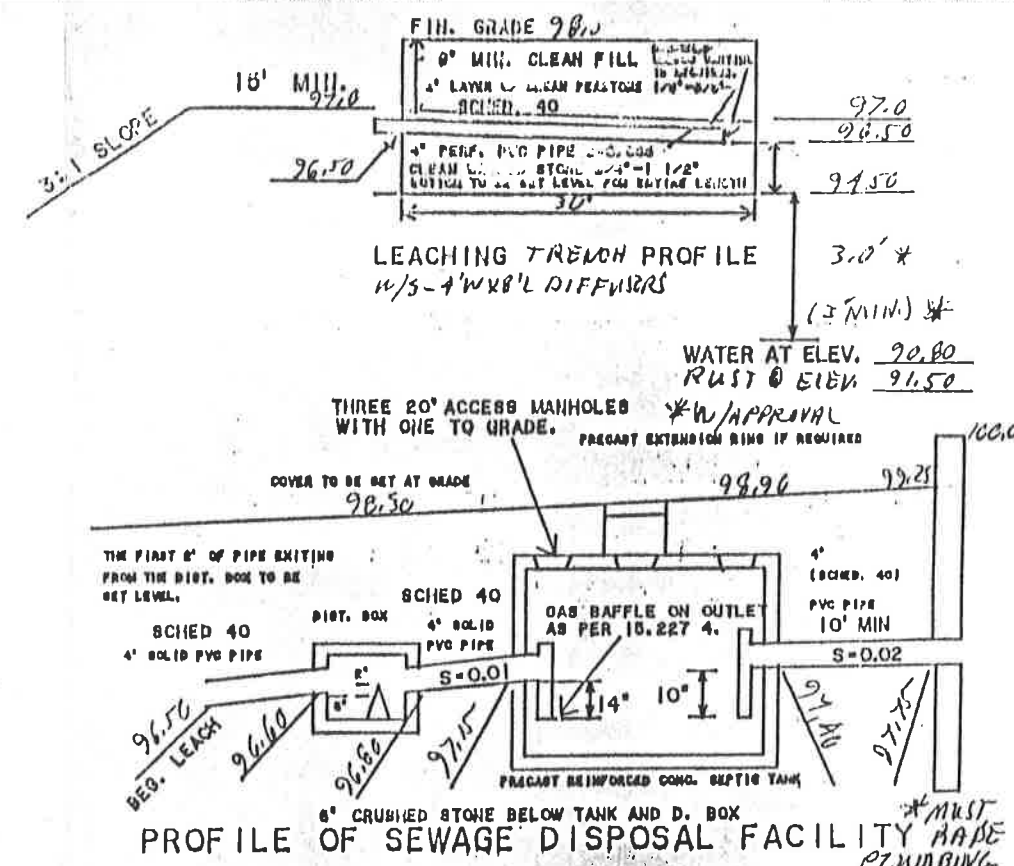 FIN. GRADE 98.
9" MIN. CLEAN FILL
LAYER CLEAN PEASTONE
SCHED. 40
16' MIN.
97.0
3:1 SLOPE
96.50
4" PERF. PVC PIPE
CLEAN STONE 3/4"-1 1/2"
BOTTOM TO BE SET LEVEL FOR ENTIRE LENGTH
30'
97.0
96.50
94.50
LEACHING TRENCH PROFILE
W/5-4'WX8'L DIFFUSERS
3.0' *
MIN.) *
WATER AT ELEV. 90.80
RUST @ ELEV. 91.50
* W/APPROVAL
THREE 20" ACCESS MANHOLES
WITH ONE TO GRADE.
PRECAST EXTENSION RING IF REQUIRED
100.0
COVER TO BE SET AT GRADE
98.50
98.90
99.25
THE FIRST 2' OF PIPE EXITING
FROM THE DIST. BOX TO BE
SET LEVEL.
SCHED 40
4" SOLID PVC PIPE
DIST. BOX
2"
6"
SCHED 40
4" SOLID
PVC PIPE
S=0.01
GAS BAFFLE ON OUTLET
AS PER 15.227 4.
14"
10"
4"
(SCHED. 40)
PVC PIPE
10' MIN
S=0.02
96.50
BEG. LEACH
96.60
96.80
97.15
97.40
97.75
PRECAST REINFORCED CONC. SEPTIC TANK
6" CRUSHED STONE BELOW TANK AND D. BOX
PROFILE OF SEWAGE DISPOSAL FACILITY
* MUST
PLUMBING